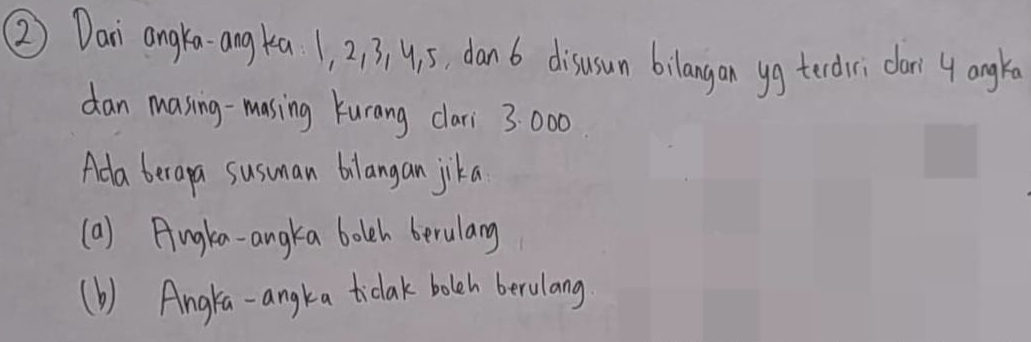 ② Dari angka-angka : 1, 2, 3, 4, 5, dan 6 disusun bilangan yg terdiri dari 4 angka
dan masing-masing kurang dari 3.000.
Ada berapa susunan bilangan jika.
(a) Angka-angka boleh berulang
(b) Angka-angka tidak boleh berulang.